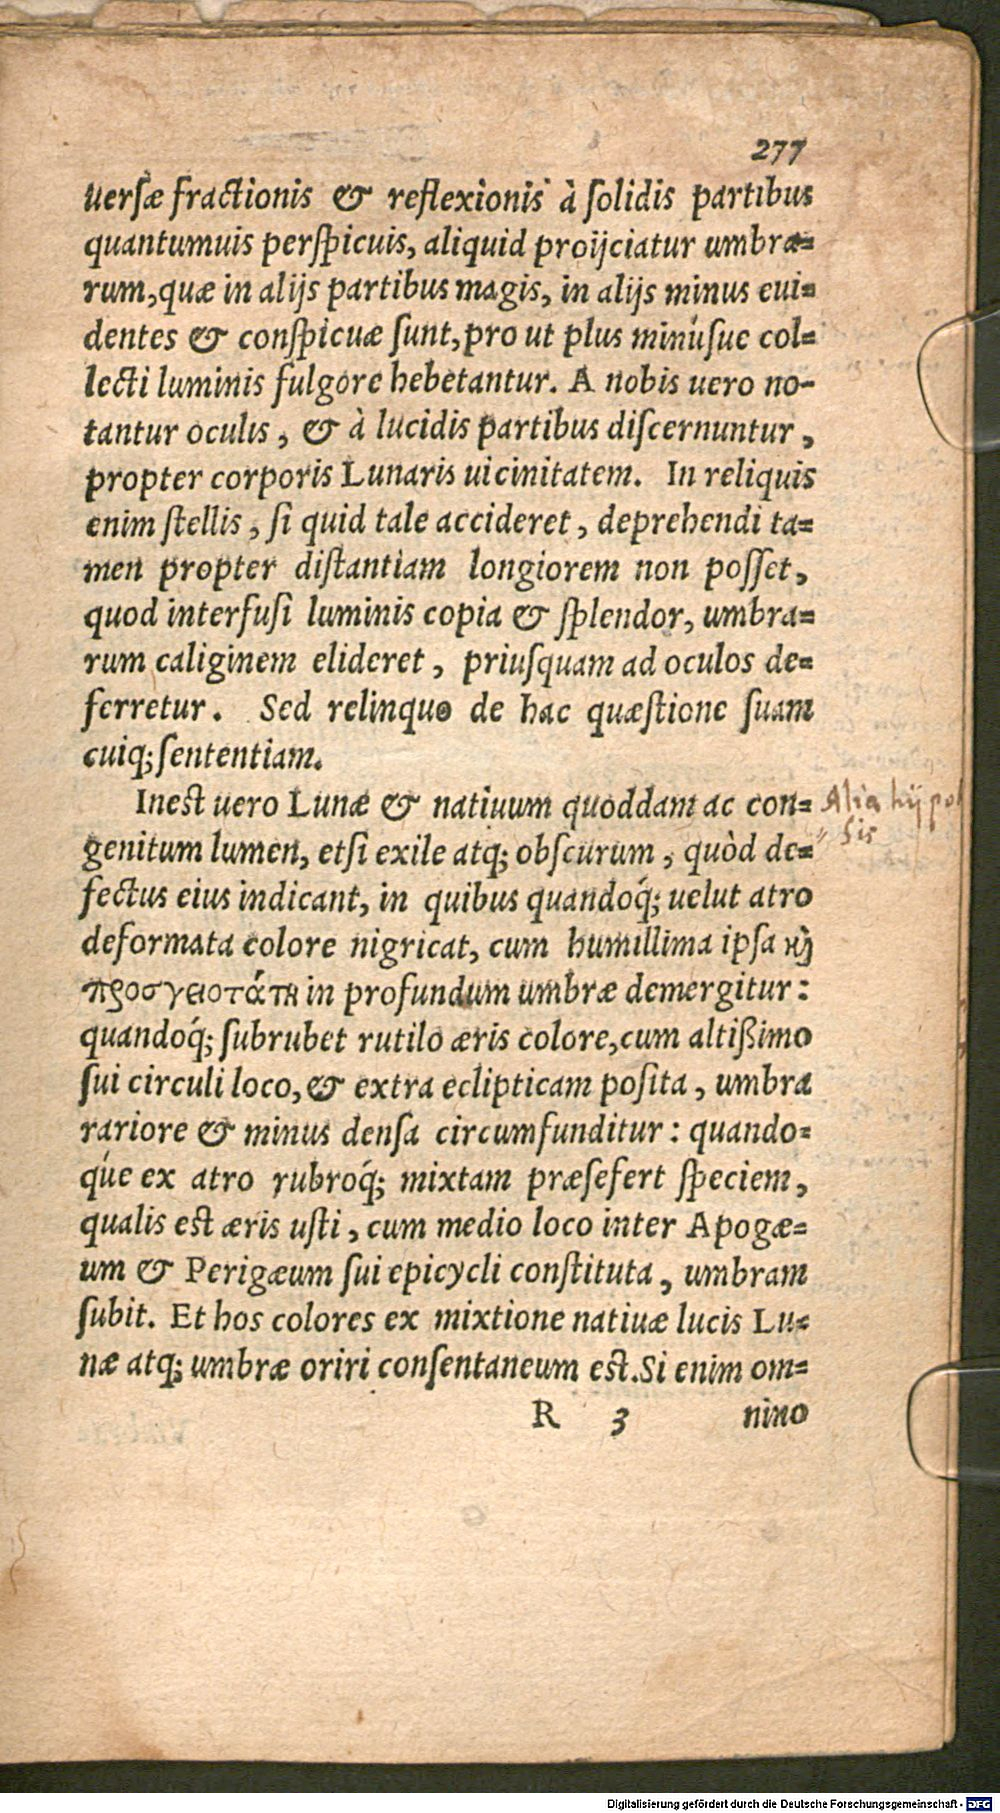 277
uersæ fractionis & reflexionis à ſolidis partibus
quantumuis perſpicuis, aliquid proijciatur umbra=
rum, quæ in alijs partibus magis, in alijs minus eui=
dentes & conſpicuæ ſunt, pro ut plus minúſue col=
lecti luminis fulgore hebetantur. A nobis uero no-
tantur oculis, & à lucidis partibus diſcernuntur,
propter corporis Lunaris uicinitatem. In reliquis
enim ſtellis, ſi quid tale accideret, deprehendi ta=
men propter diſtantiam longiorem non poſſet,
quod interfuſi luminis copia & ſplendor, umbra=
rum caliginem elideret, priuſquam ad oculos de=
ferretur. Sed relinquo de hac quæſtione ſuam
cuiq; ſententiam.
Ineſt uero Lunæ & natiuum quoddam ac con= Alia hypo
genitum lumen, etſi exile atq; obſcurum, quòd de= sis
fectus eius indicant, in quibus quandoq́; uelut atro
deformata colore nigricat, cum humillima ipſa ϗ̀
προσγειοτάτη in profundum umbræ demergitur:
quandoq́; ſubrubet rutilo æris colore, cum altißimo
ſui circuli loco, & extra eclipticam poſita, umbra
rariore & minus denſa circumfunditur: quando=
q́ue ex atro rubroq́; mixtam præſefert ſpeciem,
qualis eſt æris uſti, cum medio loco inter Apogæ=
um & Perigæum ſui epicycli conſtituta, umbram
ſubit. Et hos colores ex mixtione natiuæ lucis Lu=
næ atq; umbræ oriri conſentaneum eſt. Si enim om=
R 3 nino
Digitalisierung gefördert durch die Deutsche Forschungsgemeinschaft - DFG